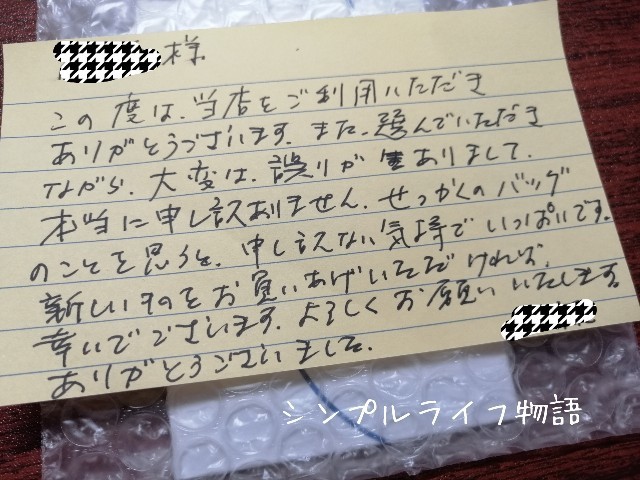 様
この度は、当店をご利用いただき
ありがとうございます。また、選んでいただき
ながら、大変は、誤りが ありまして、
本当に申し訳ありません。せっかくのバッグ
のことを思うと、申し訳ない気持でいっぱいです。
新しいものをお買いあげいただければ、
幸いでございます。よろしくお願いいたします
ありがとうございました。
シンプルライフ物語